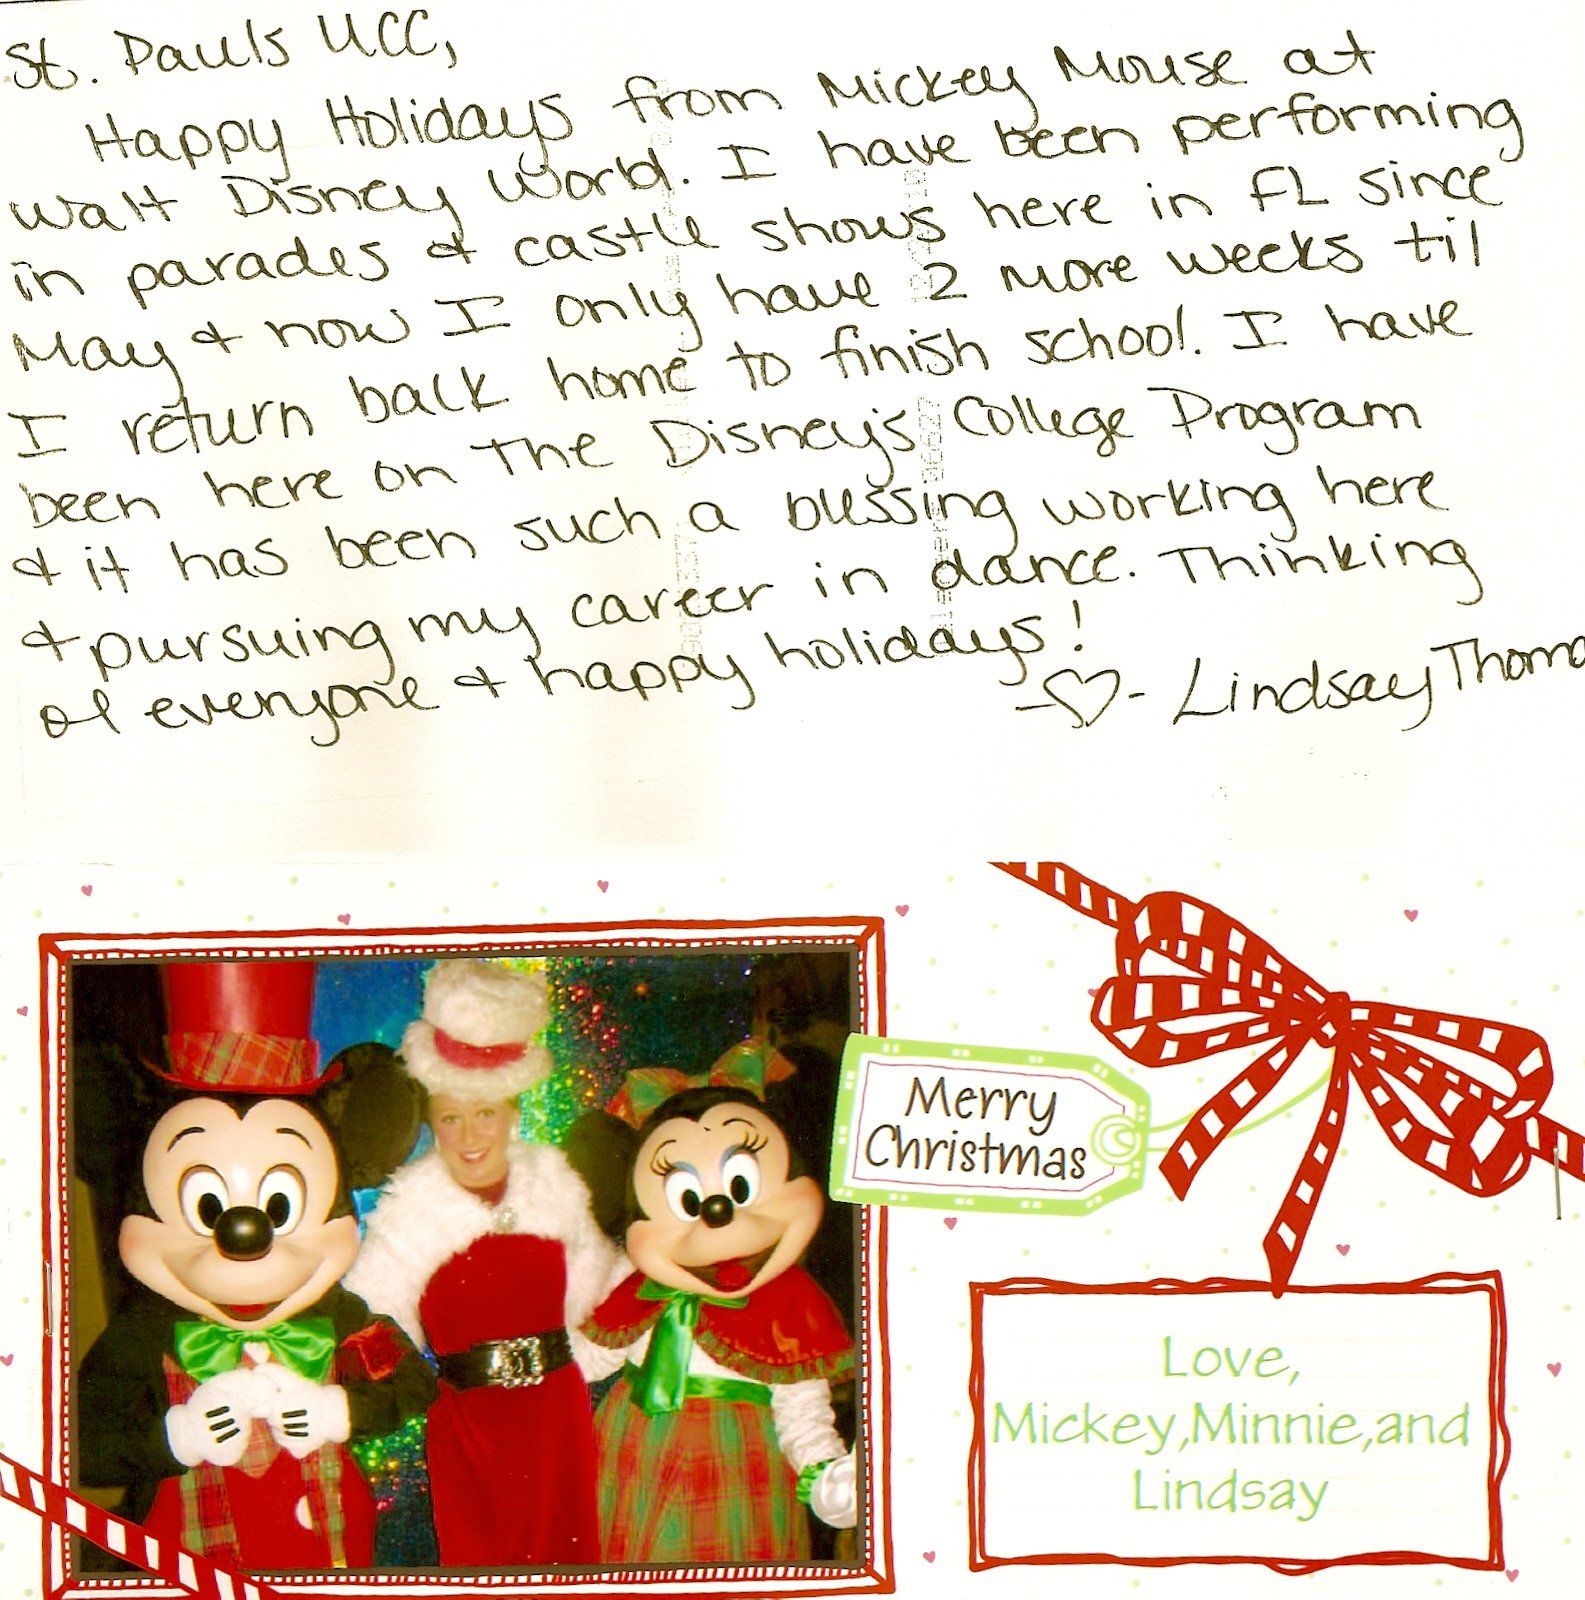 St. Pauls UCC,
Happy Holidays from Mickey Mouse at
Walt Disney World. I have been performing
in parades & castle shows here in FL since
May & now I only have 2 more weeks til
I return back home to finish school. I have
been here on The Disney's College Program
& it has been such a blessing working here
& pursuing my career in dance. Thinking
of everyone & happy holidays!
-♡- Lindsay Thoma
Merry
Christmas
Love,
Mickey,Minnie,and
Lindsay